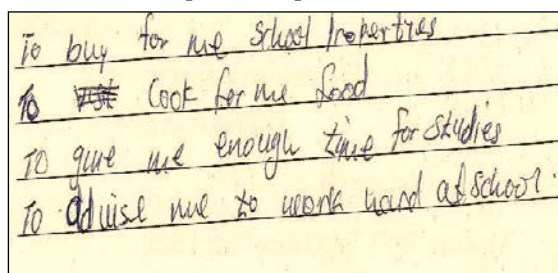 To buy for me school properties
To cook for me food
To give me enough time for studies
To advise me to work hard at school.